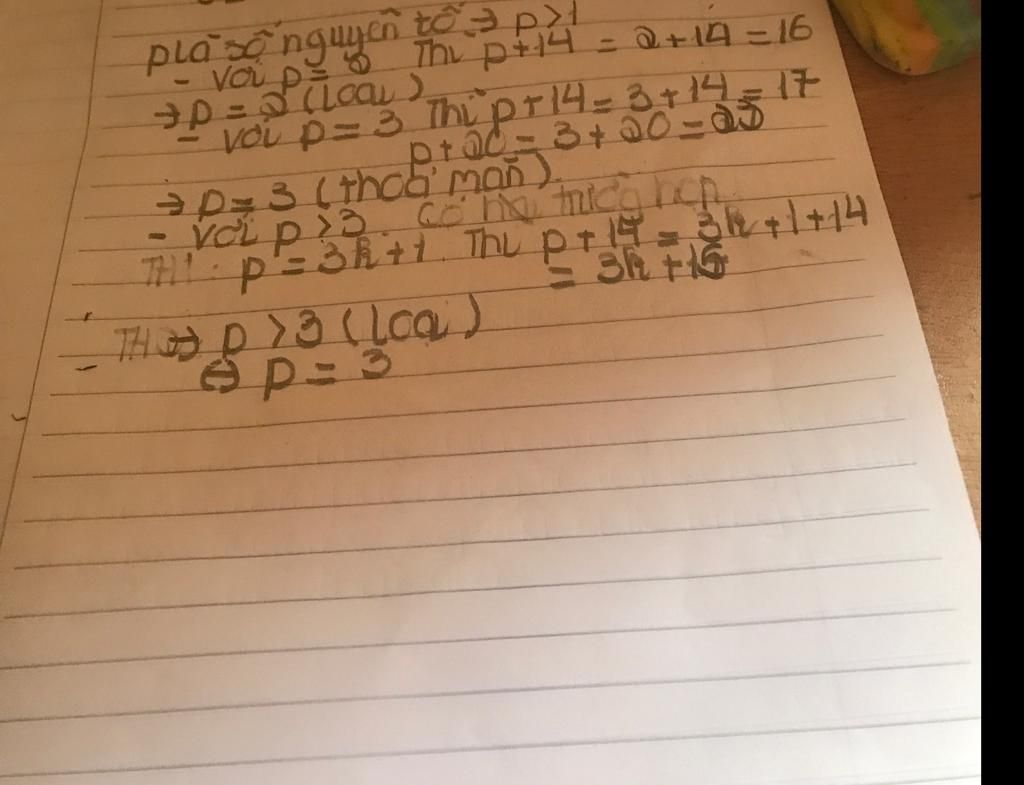 p là số nguyên tố ⇒ p > 1
- Với p = 2 Thì p + 14 = 2 + 14 = 16
⇒ p = 2 (loại)
- Với p = 3 Thì p + 14 = 3 + 14 = 17
p + 20 = 3 + 20 = 23
⇒ p = 3 (thoả mãn).
- Với p > 3. Có hai trường hợp
TH1: p = 3k + 1. Thì p + 14 = 3k + 1 + 14
= 3k + 15
- TH ⇒ p > 3 (loại)
⇔ p = 3